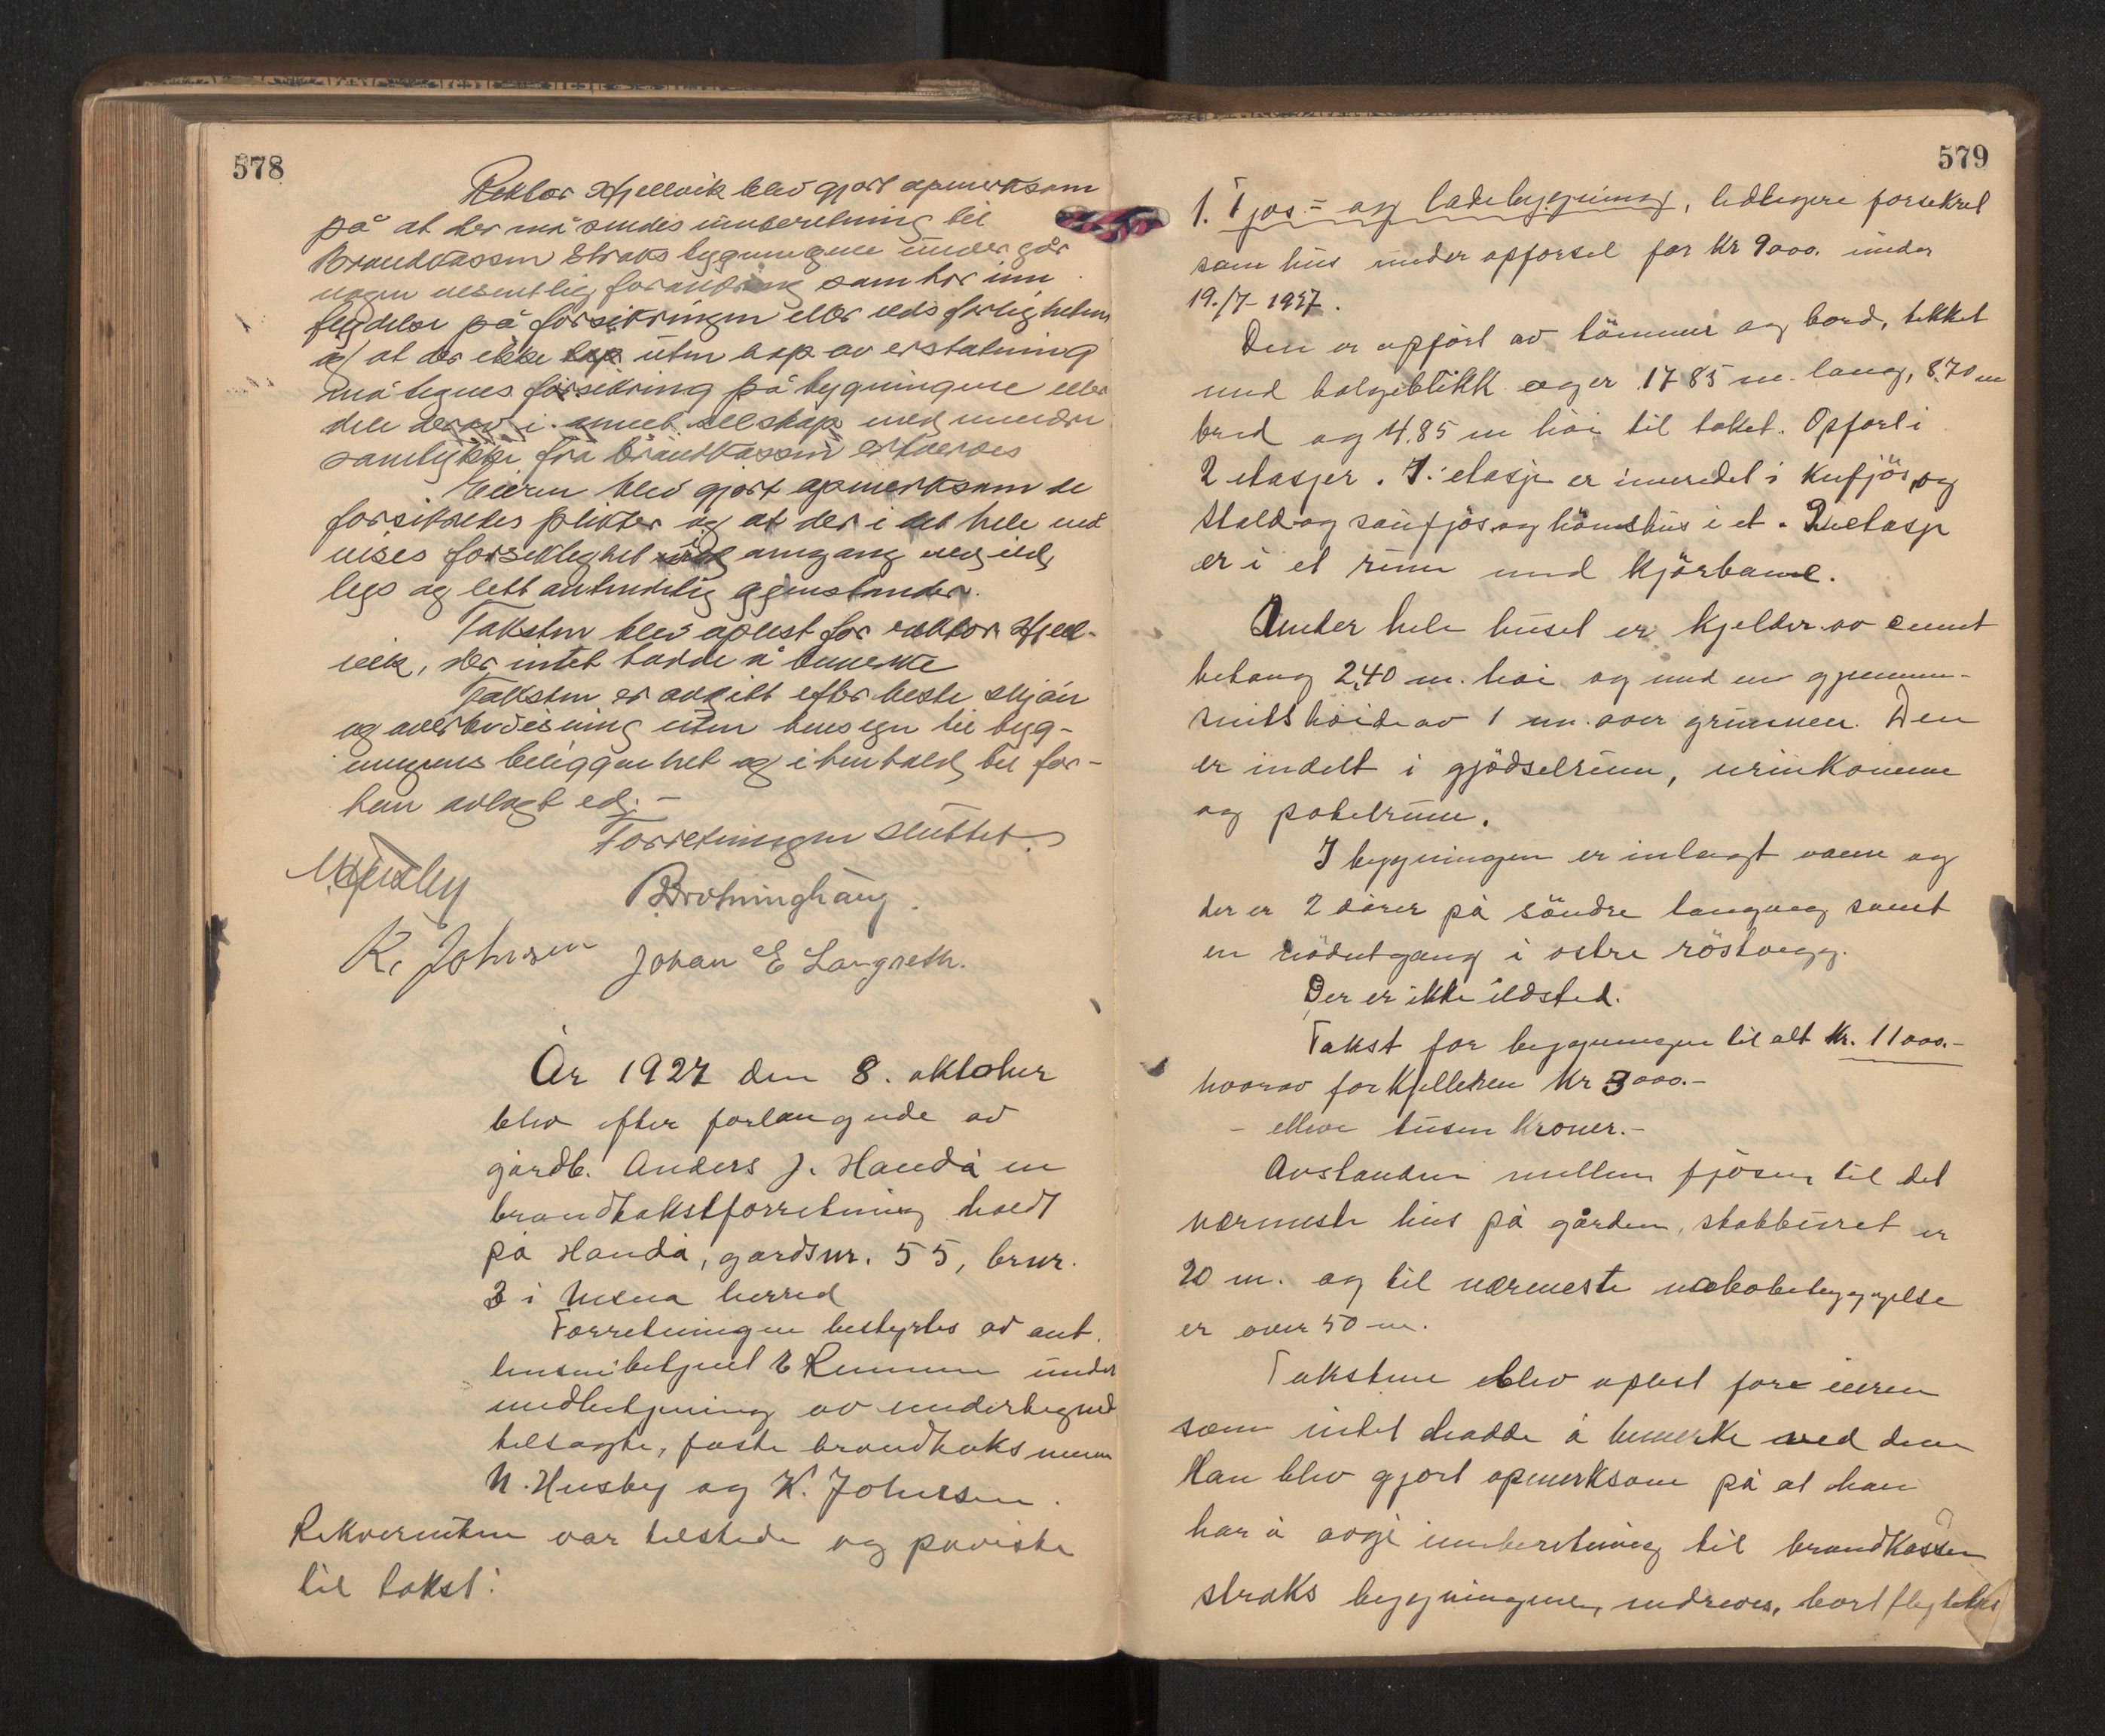 578
Rektor Hjellvik blev gjort opmerksom
på at der må sendes innberetning til
Brandkassen straks bygningene undergår
nogen vesentlig forandring som har inn
flydelse på forsikringen eller ildsfarligheten
og at der ikke uten tap av erstatning
må tegnes forsikring på bygningene eller
dele derav i annet selskap med mindre
samtykke fra brandkassen erhverves
Eieren blev gjort opmerksom de
forsikredes plikter og at der i det hele må
vises forsiktighet omgang med ild,
lys og lett antendelig gjenstander.
Taksten blev oplest for rektor Hjell-
vik, der intet hadde å bemerke
Taksten er avgitt efter beste skjøn
og overbevisning uten hensyn til byg-
ningens beliggenhet og i henhold til for-
hen avlagt ed. -
Forretningen sluttet.
N Husby
B. Drotninghaug.
K. Johnsen Johan E Langseth.
År 1927 den 8. oktober
blev efter forlangende av
gårdb. Anders J. Handå en
brandtakstforretning holdt
på Handå, gårdsnr. 55, brnr.
3 i herred
Forretningen bestyrtes av
lensm.betjent under
medbetjening av undertegned
tilsagte, faste brandtaksmenn
N. Husby og K. Johnsen.
Rekvirenten var tilstede og paviste
til takst:
579
1. Fjøs- og ladebygning, tidligere forsikret
som hus under opførsel for kr 9000. under
19./7-1927.
Den er opført av tömmer og bord, tekket
med bølgeblikk og er 17 85 m. lang, 8.70 m
bred og 4.85 m høi til taket. Opført i
2 etasjer. 1. etasje er inredet i kufjös, og
Stald og saufjös og hönsehus i et. 2. etasje
er i et rum med kjörbane.
Under hele huset er kjelder av cement
betong 2,40 m. høi og med en gjennem-
snitshøide av 1 m. over grunnen. Den
er indelt i gjödselrum, urinkomme
og potetrum.
I bygningen er inlagt vann og
der er 2 dører på söndre langvegg samt
en nödutgang i østre röstvegg.
Der er ikke ildsted.
Takst for bygningen til alt Kr. 11000.-
hvorav for Kjelleren Kr 3000.-
- elleve tusen Kroner.-
Avstanden mellem fjösen til det
nærmeste hus på gården, stabburet er
20 m. og til nærmeste nabobebyggelse
er over 50 m.
Taksten blev oplest for eieren
som intet hadde å bemerke ved den
Han blev gjort opmerksom på at han
har å avgi innberetning til brandkassen
straks bygningene, nedrives, bortflyttes